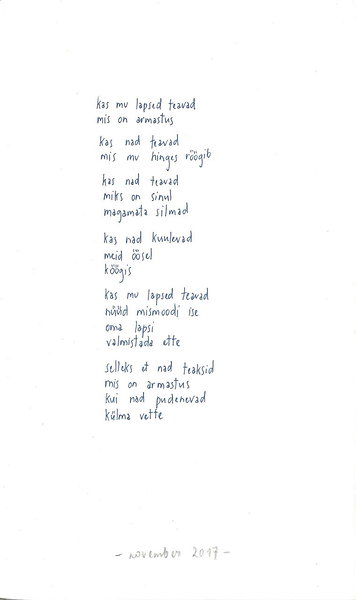 kas mu lapsed teavad
mis on armastus
kas nad teavad
mis mu hinges röögib
kas nad teavad
miks on sinul
magamata silmad
kas nad kuulevad
meid öösel
köögis
kas mu lapsed teavad
nüüd mismoodi ise
oma lapsi
valmistada ette
selleks et nad teaksid
mis on armastus
kui nad pudenevad
külma vette
- november 2017 -